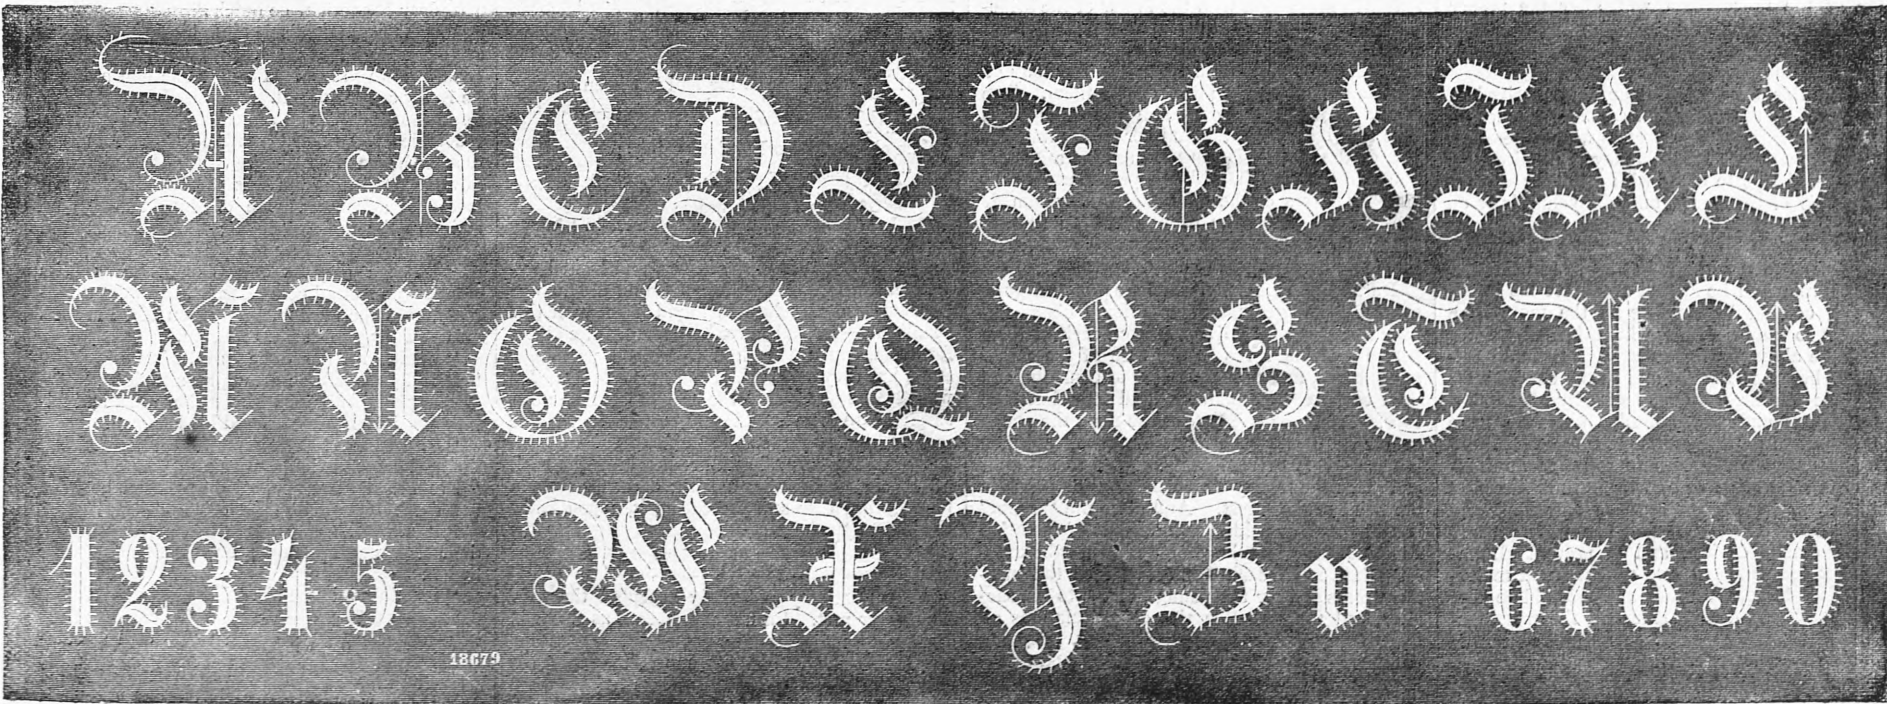 A B C D E F G H I K L
M N O P Q R S T U V
1 2 3 4 5 W X Y Z v 6 7 8 9 0
18679